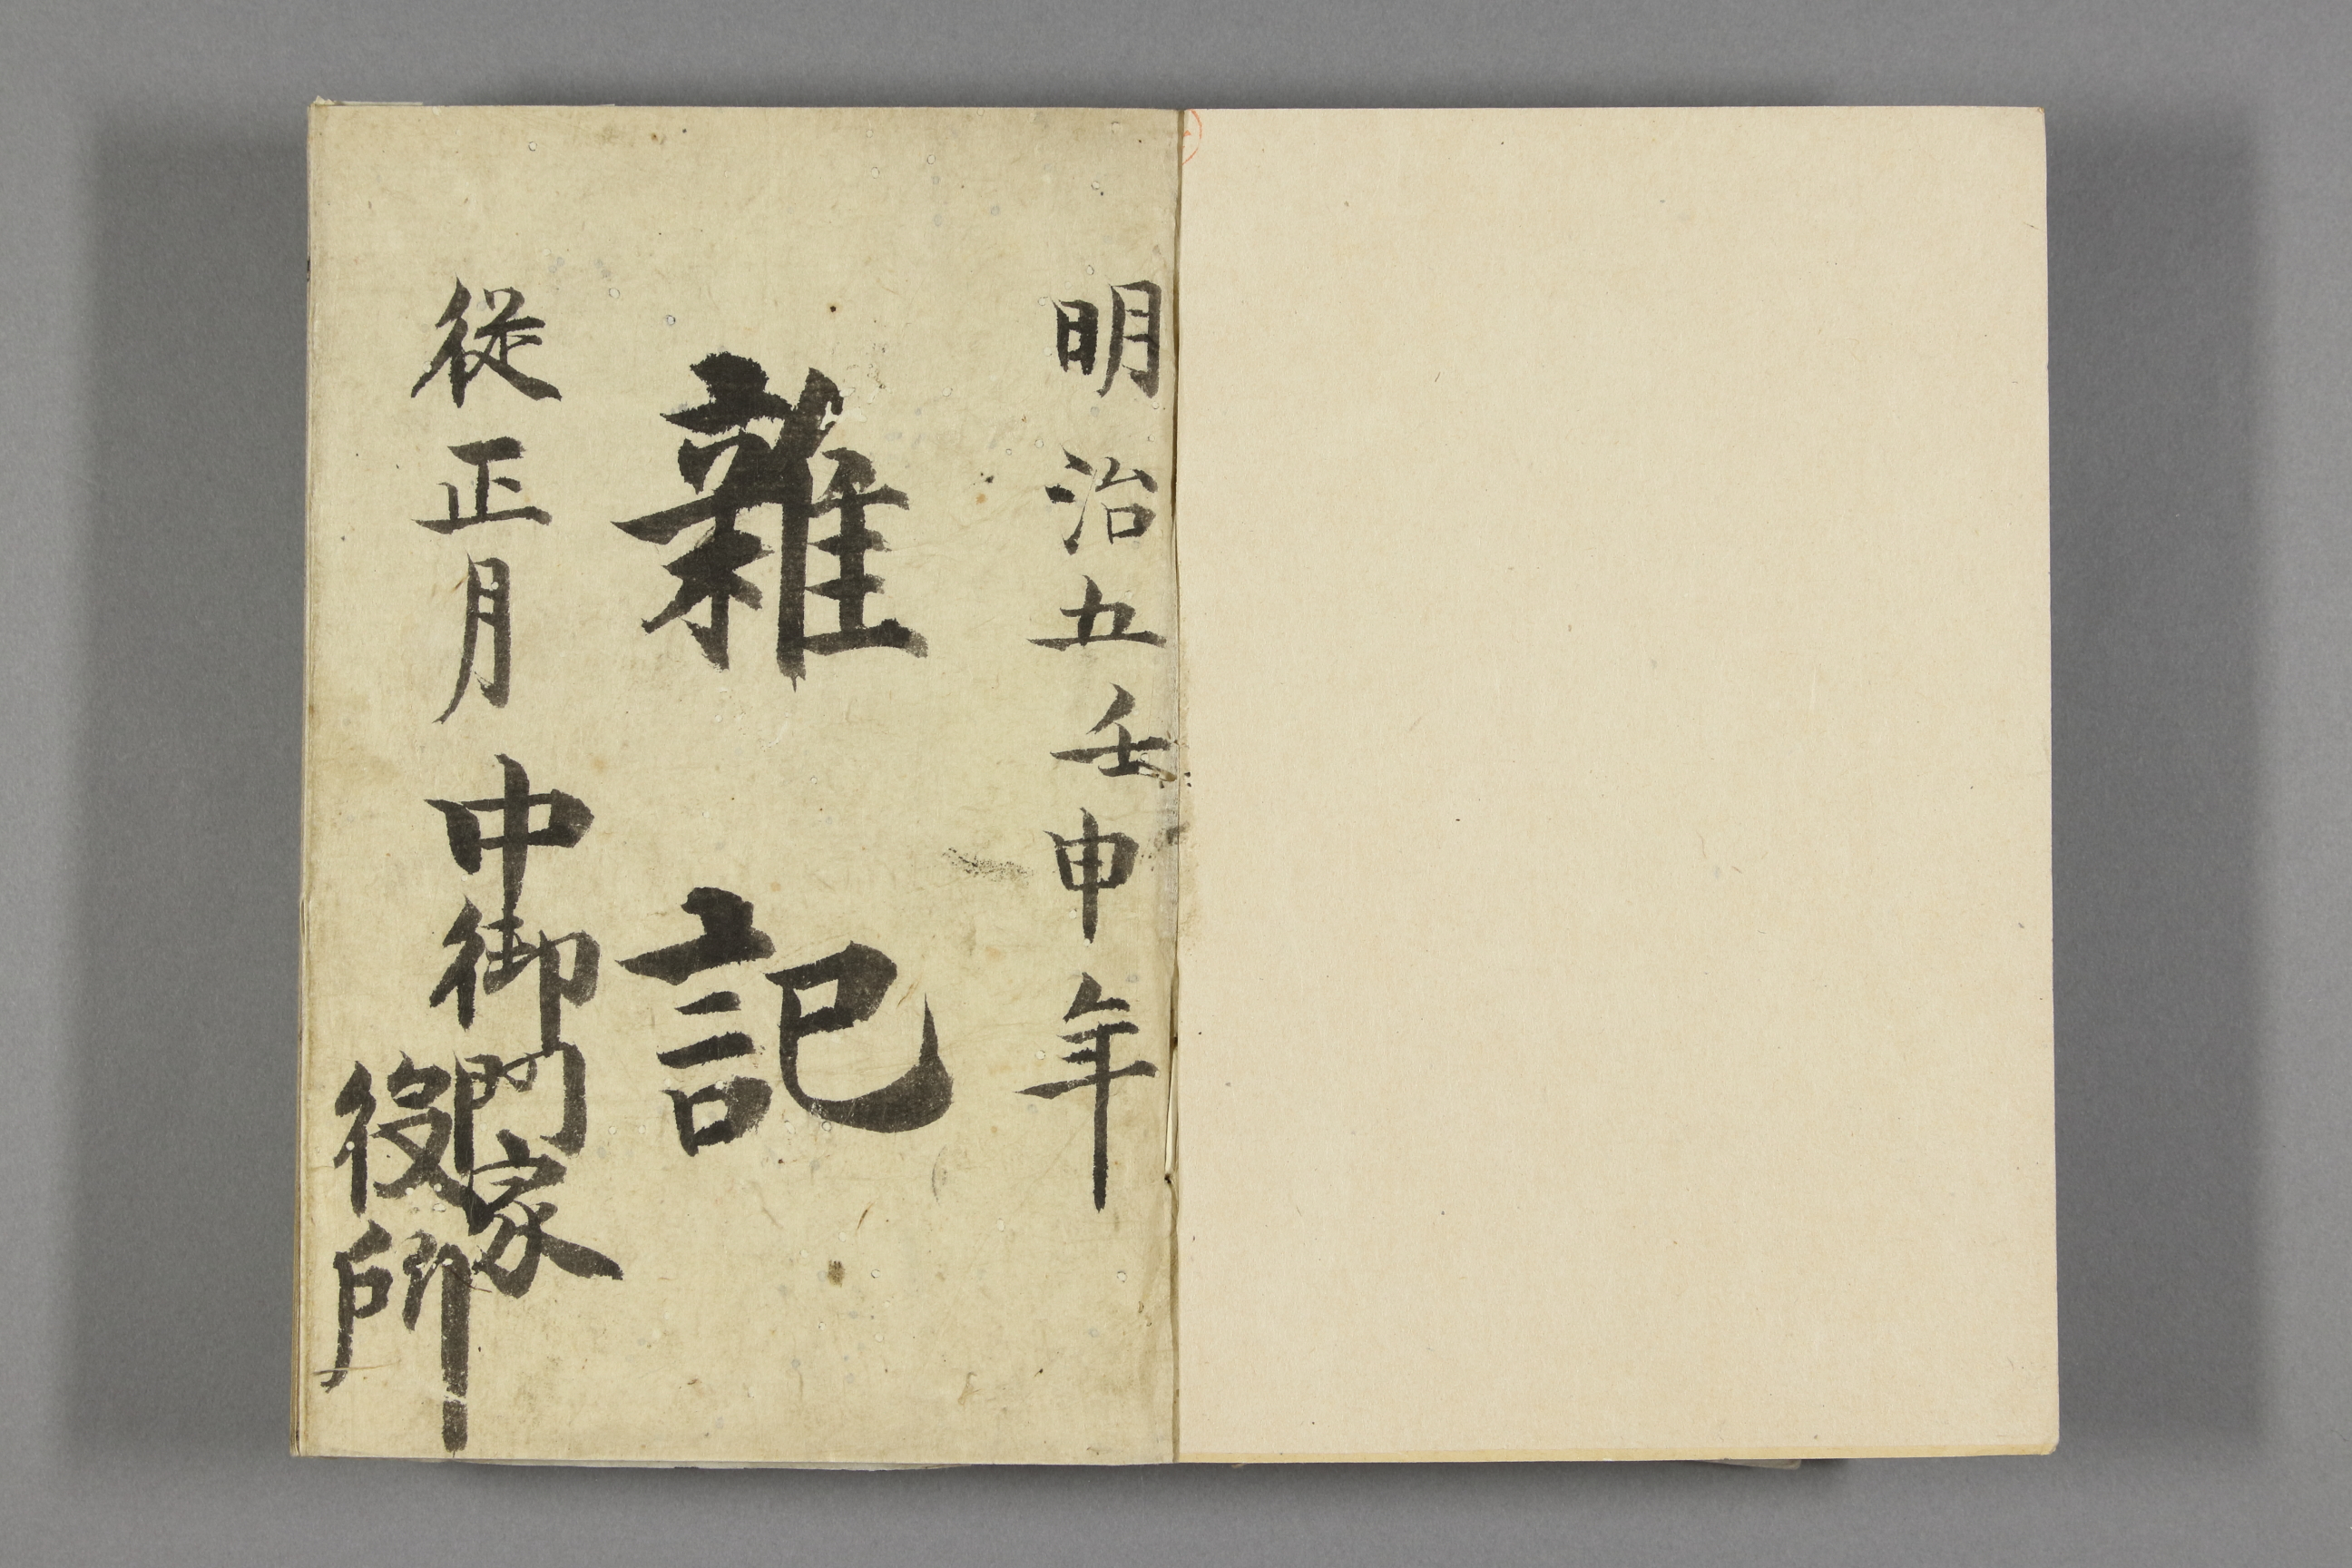 明治五壬申年
雜記
従正月
中御門家
役所